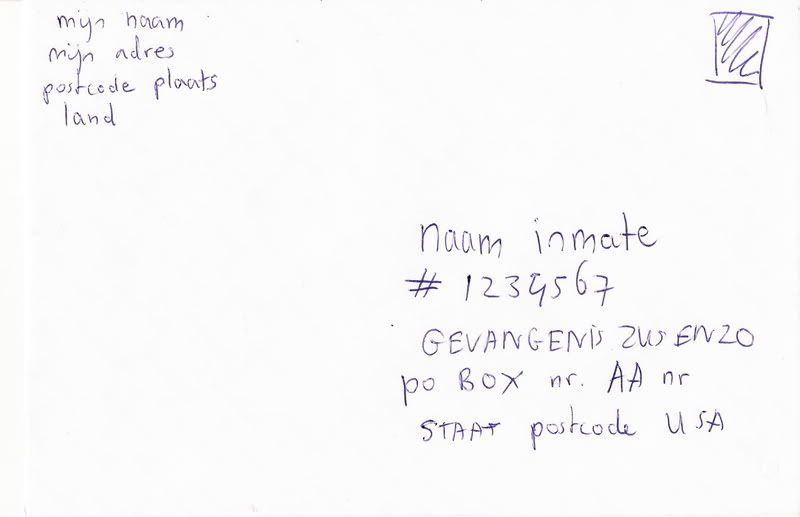 mijn naam
mijn adres
postcode plaats
land
naam inmate
# 1234567
GEVANGENIS ZUS EN ZO
po BOX nr. AA nr
STAAT postcode USA